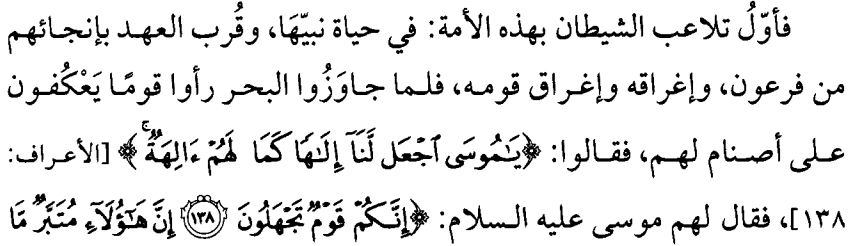 فأوّلُ تلاعب الشيطان بهذه الأمة: في حياة نبيّهَا، وقُرب العهد بإنجائهم
من فرعون، وإغراقه وإغراق قومه، فلما جاوَزُوا البحر رأوا قومًا يَعْكُفون
على أصنام لهم، فقالوا: ﴿يَٰمُوسَى ٱجۡعَل لَّنَآ إِلَٰهٗا كَمَا لَهُمۡ ءَالِهَةٞۚ﴾ [الأعراف:
١٣٨]، فقال لهم موسى عليه السلام: ﴿إِنَّكُمۡ قَوۡمٞ تَجۡهَلُونَ ١٣٨ إِنَّ هَٰٓؤُلَآءِ مُتَبَّرٞ مَّا